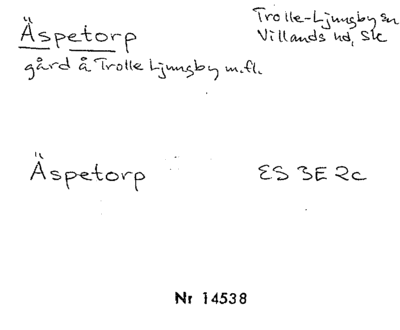 Äspetorp
Trolle-Ljungby sn
Villands hd, Sk
gård å Trolle Ljungby m.fl.
Äspetorp
ES 3E 2c
Nr 14538